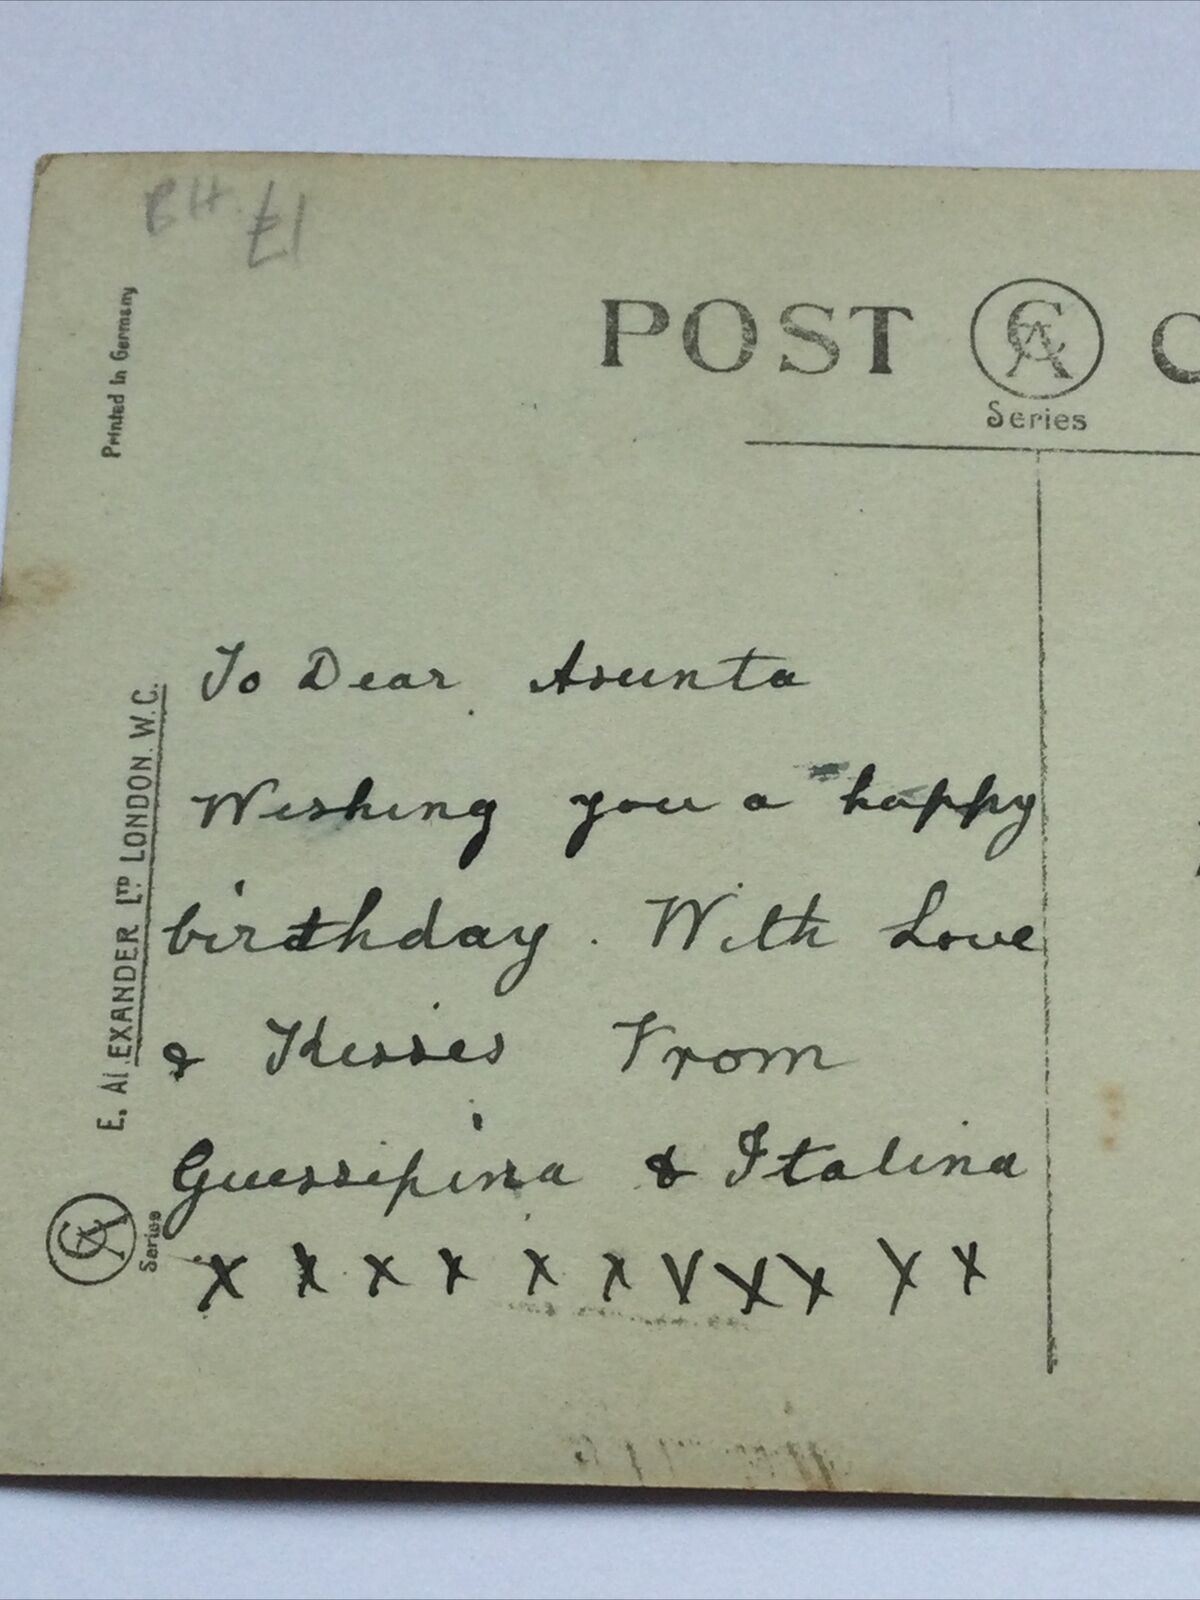 POST C
Series
Printed in Germany
E. ALEXANDER LTD LONDON. W.C.
Series
To Dear Asunta
Wishing you a happy
birthday. With Love
& Kisses From
Guessipina & Italina
x x x x x x V x x x x